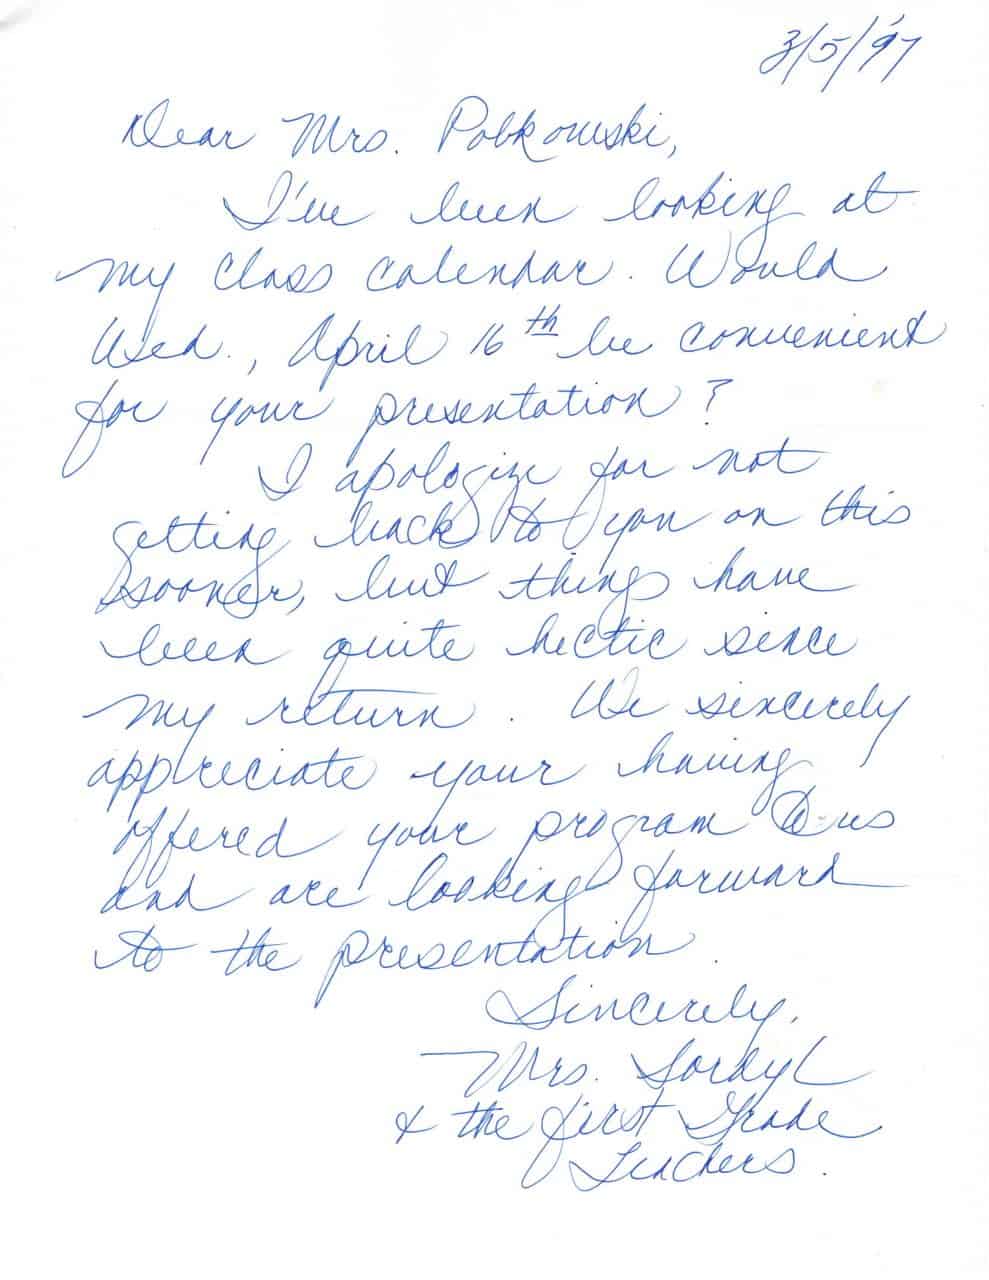 3/5/'97
Dear Mrs. Pobkowski,
I've been looking at
my class calendar. Would
Wed., April 16th be convenient
for your presentation?
I apologize for not
getting back to you on this
sooner, but things have
been quite hectic since
my return. We sincerely
appreciate your having
offered your program to us
and are looking forward
to the presentation.
Sincerely,
Mrs. Sordyl
& the first Grade
Teachers.